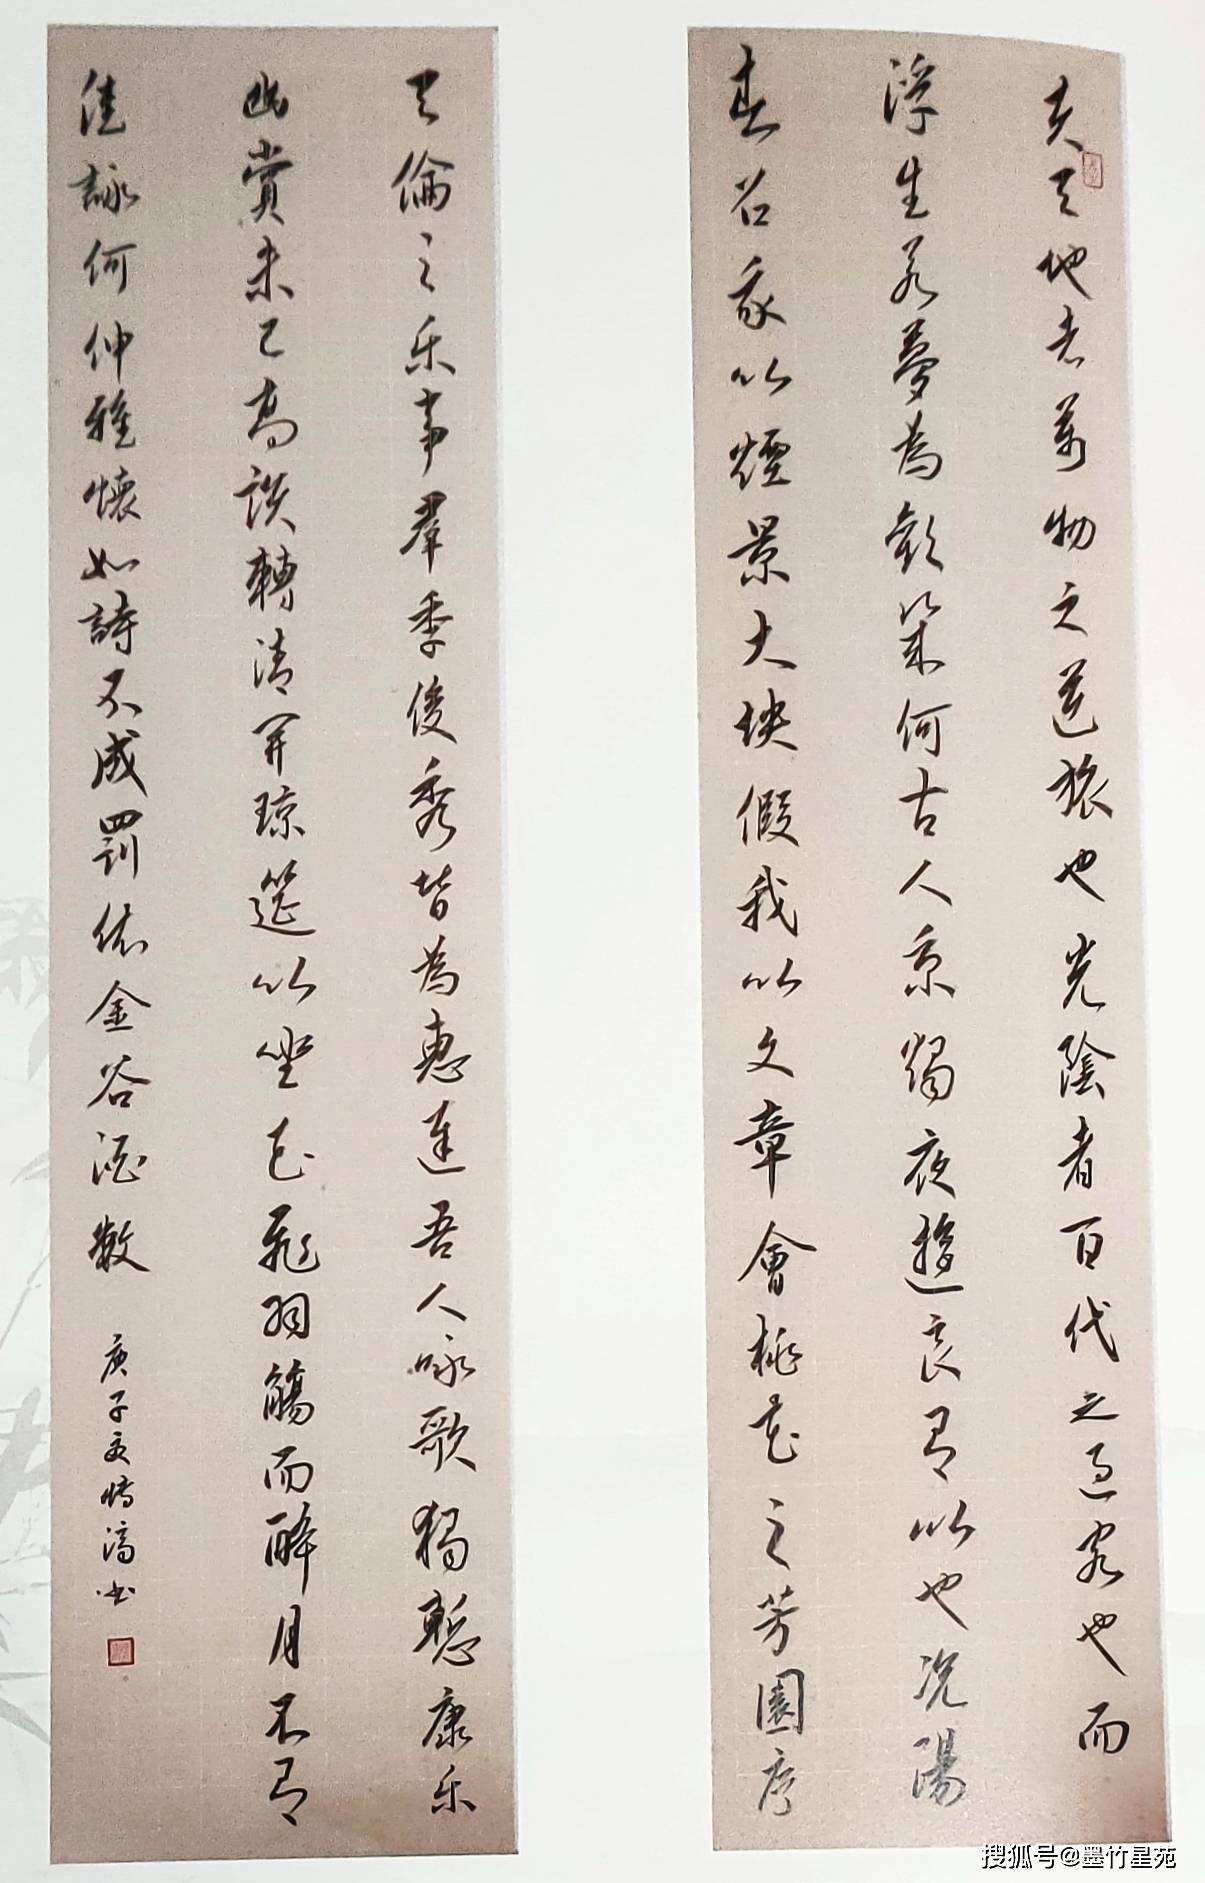 夫天地者萬物之逆旅也光陰者百代之過客也而
浮生若夢為歡幾何古人秉燭夜遊良有以也況陽
春召我以煙景大塊假我以文章會桃花之芳園序
天倫之乐事羣季俊秀皆為惠連吾人咏歌獨慙康乐
幽賞未已高談轉清開琼筵以坐花飛羽觴而醉月不有
佳詠何伸雅懷如詩不成罰依金谷酒數
庚子夏 书
搜狐号@墨竹星苑